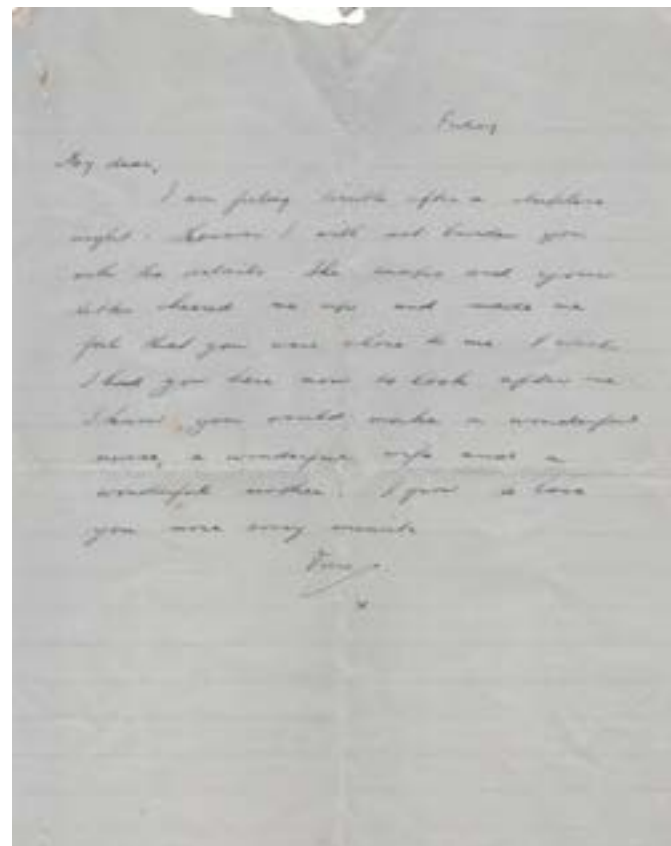 Friday
My dear,
I am feeling terrible after a sleepless
night. However I will not burden you
with the details. The and your
letter cheered me up and made me
feel that you were close to me. I wish
I had you here now to look after me.
I know you would make a wonderful
nurse, a wonderful wife and a
wonderful mother. I grow to love
you more every minute